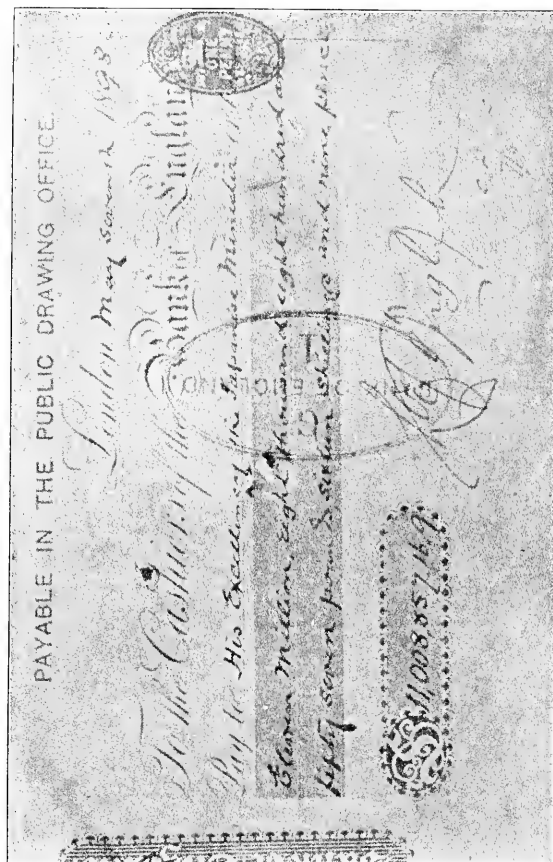 PAYABLE IN THE PUBLIC DRAWING OFFICE.
London May seventh 1898
To the Cashiers of the Bank of England
Pay to His Excellency the Japanese Minister
Eleven Million, eight thousand eight hundred
fifty seven pounds sixteen shillings and nine pence
BANK OF ENGLAND
£11,008,857.16.9